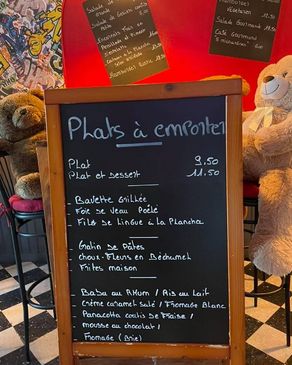 Salade Gourmand 11.50
Café Gourmand
Plats à emporter
Plat 9.50
Plat et dessert 11.50
- Bavette Grillée
- Foie de Veau Poêlé
- Filet de Lingue à la Plancha
- Gratin de Pâtes
choux-Fleurs en Béchamel
Frites maison
- Baba au Rhum / Ris au lait
- Crème caramel salé / Fromage Blanc
- Panacotta coulis de Fraise /
mousse au chocolat /
Fromage (Brie)